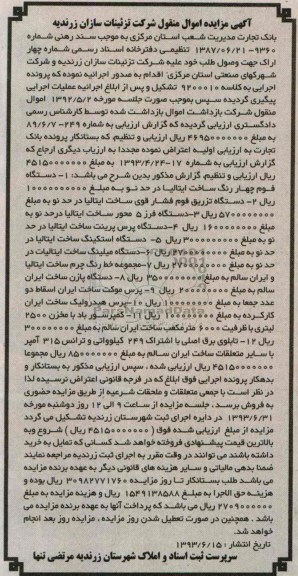 آگهی مزایده اموال منقول شرکت تزئینات سازان زرندیه
بانک تجارت مدیریت شعب استان مرکزی به موجب سند رهنی شماره
۹۳۶۰- ۱۳۸۷/۰۶/۲۱ تنظیمی دفترخانه اسناد رسمی شماره چهار
اراک جهت وصول طلب خود علیه شرکت تزئینات سازان زرندیه و شرکت
شهرکهای صنعتی استان مرکزی اقدام به صدور اجرائیه نموده که پرونده
اجرایی به کلاسه ۹۲۰۰۰۱۰ تشکیل و پس از ابلاغ اجرائیه عملیات اجرایی
پیگیری گردیده سپس بموجب صورت جلسه مورخه ۱۳۹۲/۵/۲ اموال
منقول شرکت بازداشت اموال بازداشت شده توسط کارشناس رسمی
دادگستری ارزیابی گردیده که گزارش ارزیابی به شماره ۲۴۹- ۸۹/۶/۷
به مبلغ ۴۶۹۵۰۰۰۰۰۰ ریال ارزیابی و تنظیم که بستانکار پرونده بانک
تجارت به ارزیابی اولیه اعتراض نموده مجددا به ارزیاب دیگری ارجاع که
گزارش ارزیابی به شماره ۱۷- ۱۳۹۳/۴/۲۴ به مبلغ ۴۱۵۰۰۰۰۰۰۰
ریال ارزیابی و تنظیم. گزارش مذکور بدین شرح می باشد: ۱- دستگاه
فوم چهار رنگ ساخت ایتالیا در حد نو به مبلغ ۱۰۰۰۰۰۰۰۰۰
ریال ۲- دستگاه تزریق فوم فشار قوی ساخت ایتالیا در حد نو به مبلغ
۵۷۰۰۰۰۰۰۰ ریال ۳- دستگاه فرز ۵ محور ساخت ایتالیا درحد نو به
مبلغ ۱۶۰۰۰۰۰۰۰۰ ریال ۴- دستگاه پرس پرینت ساخت ایتالیا در حد
نو به مبلغ ۳۰۰۰۰۰۰۰ ریال ۵- دستگاه استکینگ ساخت ایتالیا در
حد نو به مبلغ ریال ۶- دستگاه میلینگ ساخت ایتالیات در
حد نو به مبلغ ۲۷۰۰۰۰۰۰۰ ریال ۷- مجموعه خط رنگ چرم ساخت ایتالیا
و ایران سالم به مبلغ ۳۵۰۰۰۰۰۰۰ ریال ۸- دستگاه پازن ساخت ایران
سالم به مبلغ ریال ۹- پرس موکت ساخت ایران اسقاط دو
عدد جمعا به مبلغ ۱۰۰۰۰۰۰۰ ریال ۱۰- پرس هیدرولیک ساخت ایران
کارکرده به مبلغ ۱۰۰۰۰۰۰۰ ریال ۱۱- کمپرسور باد با مخزن ۲۵۰۰
لیتری با ظرفیت ۶۰۰۰ مترمکعب ساخت ایران سالم به مبلغ ۳۰۰۰۰۰۰۰
ریال ۱۲- تابلوی برق اصلی با اشتراک ۲۴۹ کیلوواتی و ترانس ۳۱۵ آمپر
با سایر متعلقات ساخت ایران سالم به مبلغ ۸۵۰۰۰۰۰۰ ریال مجموعا
۴۱۵۰۰۰۰۰۰۰ ریال ارزیابی شده. سپس ارزیابی مذکور به بستانکار و
بدهکار پرونده اجرایی فوق ابلاغ که در فرجه قانونی اعتراض نرسیده لذا
در نظر است با جمعی متعلقات و ملحقات شرعیه از طریق مزایده حضوری
به فروش برسد. جلسه مزایده از ساعت ۹ الی ۱۲ روز دوشنبه مورخه
۱۳۹۳/۶/۳۱ در دایره اجرای ثبت شهرستان زرندیه تشکیل می گردد
مزایده از مبلغ ارزیابی شده فوق (۴۱۵۰۰۰۰۰۰۰ ریال) شروع و به
بالاترین قیمت پیشنهادی فروخته خواهد شد کسانی که تمایل به خرید
داشته باشند می توانند در وقت مقرر به اجرای ثبت زرندیه مراجعه نمایند
ضمنا بدهی مالیاتی و سایر هزینه های قانونی دیگر به عهده برنده مزایده
می باشد طلب بستانکار تا روز مزایده ۳۰۹۸۲۷۷۱۷۶۰ ریال بوده و
هزینه حق الاجرا به مبلغ ۱۵۴۹۱۳۸۵۸۸ ریال و هزینه مزایده به مبلغ
۲۷۰۹۰۰۰۰۰ ریال می باشند که پرداخت آنها به عهده برنده مزایده می
باشد. همچنین در صورت تعطیل شدن روز مزایده، مزایده روز بعد انجام
خواهد شد.
تاریخ انتشار: ۱۳۹۳/۶/۱۵
سرپرست ثبت اسناد و املاک شهرستان زرندیه مرتضی تنها